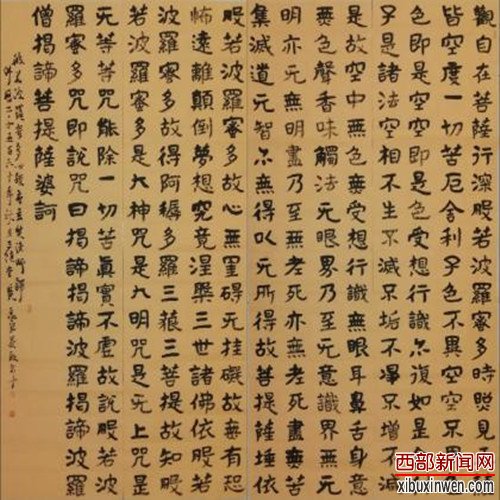 觀自在菩薩行深般若波羅蜜多時照見
皆空度一切苦厄舍利子色不異空空不異
色即是空空即是色受想行識亦復如是
子是諸法空相不生不滅不垢不淨不增不減
是故空中无色無受想行識無眼耳鼻舌身意
無色聲香味觸法无眼界乃至无意識界無
明亦无無明盡乃至无老死亦無老死盡
集滅道无智亦無得以无所得故菩提薩埵依
般若波羅蜜多故心無罣礙无挂礙故無有恐
怖遠離顛倒夢想究竟涅槃三世諸佛依般若
波羅蜜多故得阿耨多羅三藐三菩提故知般
若波羅蜜多是大神咒是大明咒是无上咒是
无等等咒能除一切苦真實不虛故說般若波
羅蜜多咒即說咒曰揭諦揭諦波羅揭諦波羅
僧揭諦菩提薩婆訶
般若波羅蜜多心經
西部新闻网
xibuxinwen.com